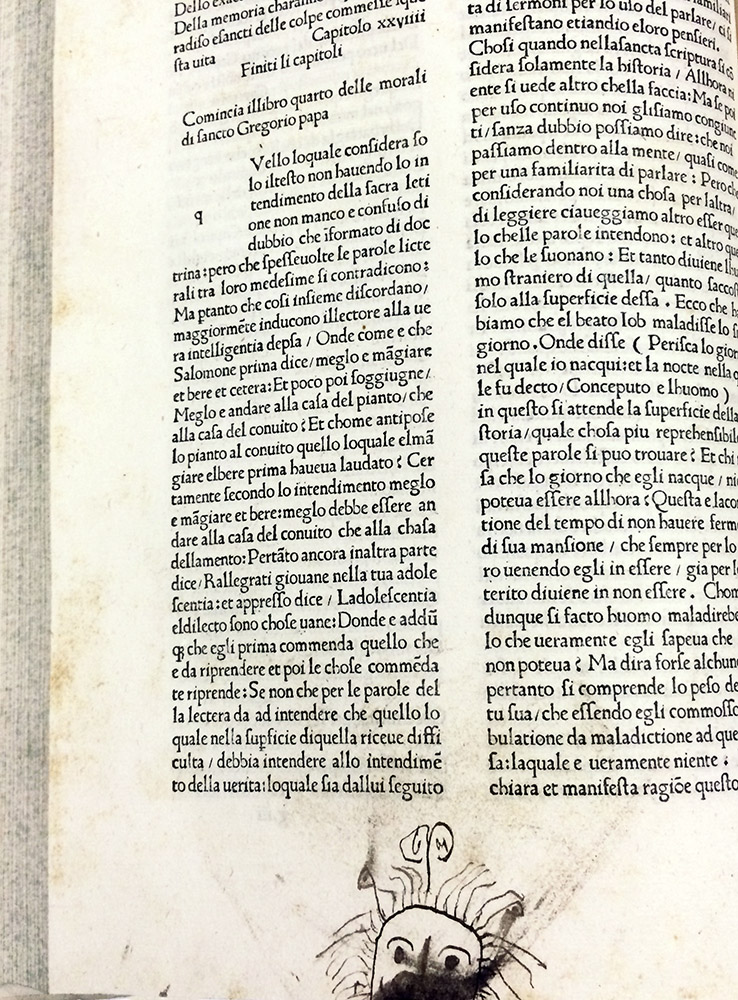 Della memoria
radiso esancti delle colpe commesse
sta uita Capitolo xxviiii
Finiti li capitoli
Comincia illibro quarto delle morali
di sancto Gregorio papa
q
Vello loquale considera ſo
lo ilteſto non hauendo lo in
tendimento della ſacra leti
one non manco e confuſo di
dubbio che īformato di doc
trina: pero che ſpeſſeuolte le parole licte
rali tra loro medeſime ſi contradicono:
Ma ptanto che coſi inſieme diſcordano/
maggiormēte inducono illectore alla ue
ra intelligentia depſa / Onde come e che
Salomone prima dice/ meglo e māgiare
et bere et cetera: Et poco poi ſoggiugne/
Meglo e andare alla caſa del pianto/ che
alla caſa del conuito? Et chome antipoſe
lo pianto al conuito quello loquale elmā
giare elbere prima haueua laudato? Cer
tamente ſecondo lo intendimento meglo
e māgiare et bere: meglo debbe eſſere an
dare alla caſa del conuito che alla chaſa
dellamento: Pertāto ancora inaltra parte
dice/ Rallegrati giouane nella tua adole
ſcentia: et appreſſo dice / Ladoleſcentia
eldilecto ſono choſe uane: Donde e addū
ꝗ che egli prima commenda quello che
e da riprendere et poi le choſe commēda
te riprende: Se non che per le parole del
la lectera da ad intendere che quello lo
quale nella ſuꝑficie diquella riceue diffi
culta / debbia intendere allo intendimē
to della uerita: loquale ſia dallui ſeguito
ta di ſermoni per lo uſo del parlare/
manifeſtano etiandio eloro penſieri.
Choſi quando nellaſancta ſcriptura ſi cō
ſidera ſolamente la hiſtoria / Allhora
ente ſi uede altro chella faccia: Ma ſe poi
per uſo continuo noi gliſiamo congiunc
ti/ ſanza dubbio poſſiamo dire: che noi
paſſiamo dentro alla mente/ quaſi come
per una familiarita di parlare: Pero che
conſiderando noi una choſa per laltra/
di leggiere ciaueggiamo altro eſſer que
lo chelle parole intendono: et altro que
lo che le ſuonano: Et tanto diuiene
mo ſtraniero di quella/ quanto ſaccoſ
ſolo alla ſuperficie deſſa. Ecco che
biamo che el beato Iob maladiſſe lo
giorno. Onde diſſe ( Periſca lo gior
nel quale io nacqui: et la nocte nella
le fu decto/ Conceputo e lhuomo )
in queſto ſi attende la ſuperficie della
ſtoria/ quale choſa piu reprehenſibil
queſte parole ſi puo trouare? Et chi
ſa che lo giorno che egli nacque /
poteua eſſere allhora? Queſta e
tione del tempo di non hauere ferm
di ſua manſione / che ſempre per lo
ro uenendo egli in eſſere / gia per
terito diuiene in non eſſere. Chom
dunque ſi facto huomo maladirebe
lo che ueramente egli ſapeua che
non poteua? Ma dira forſe alchun
pertanto ſi comprende lo peſo de
tu ſua/ che eſſendo egli commoſſo
bulatione da maladictione ad que
ſa: laquale e ueramente niente:
chiara et manifeſta ragiōe queſto